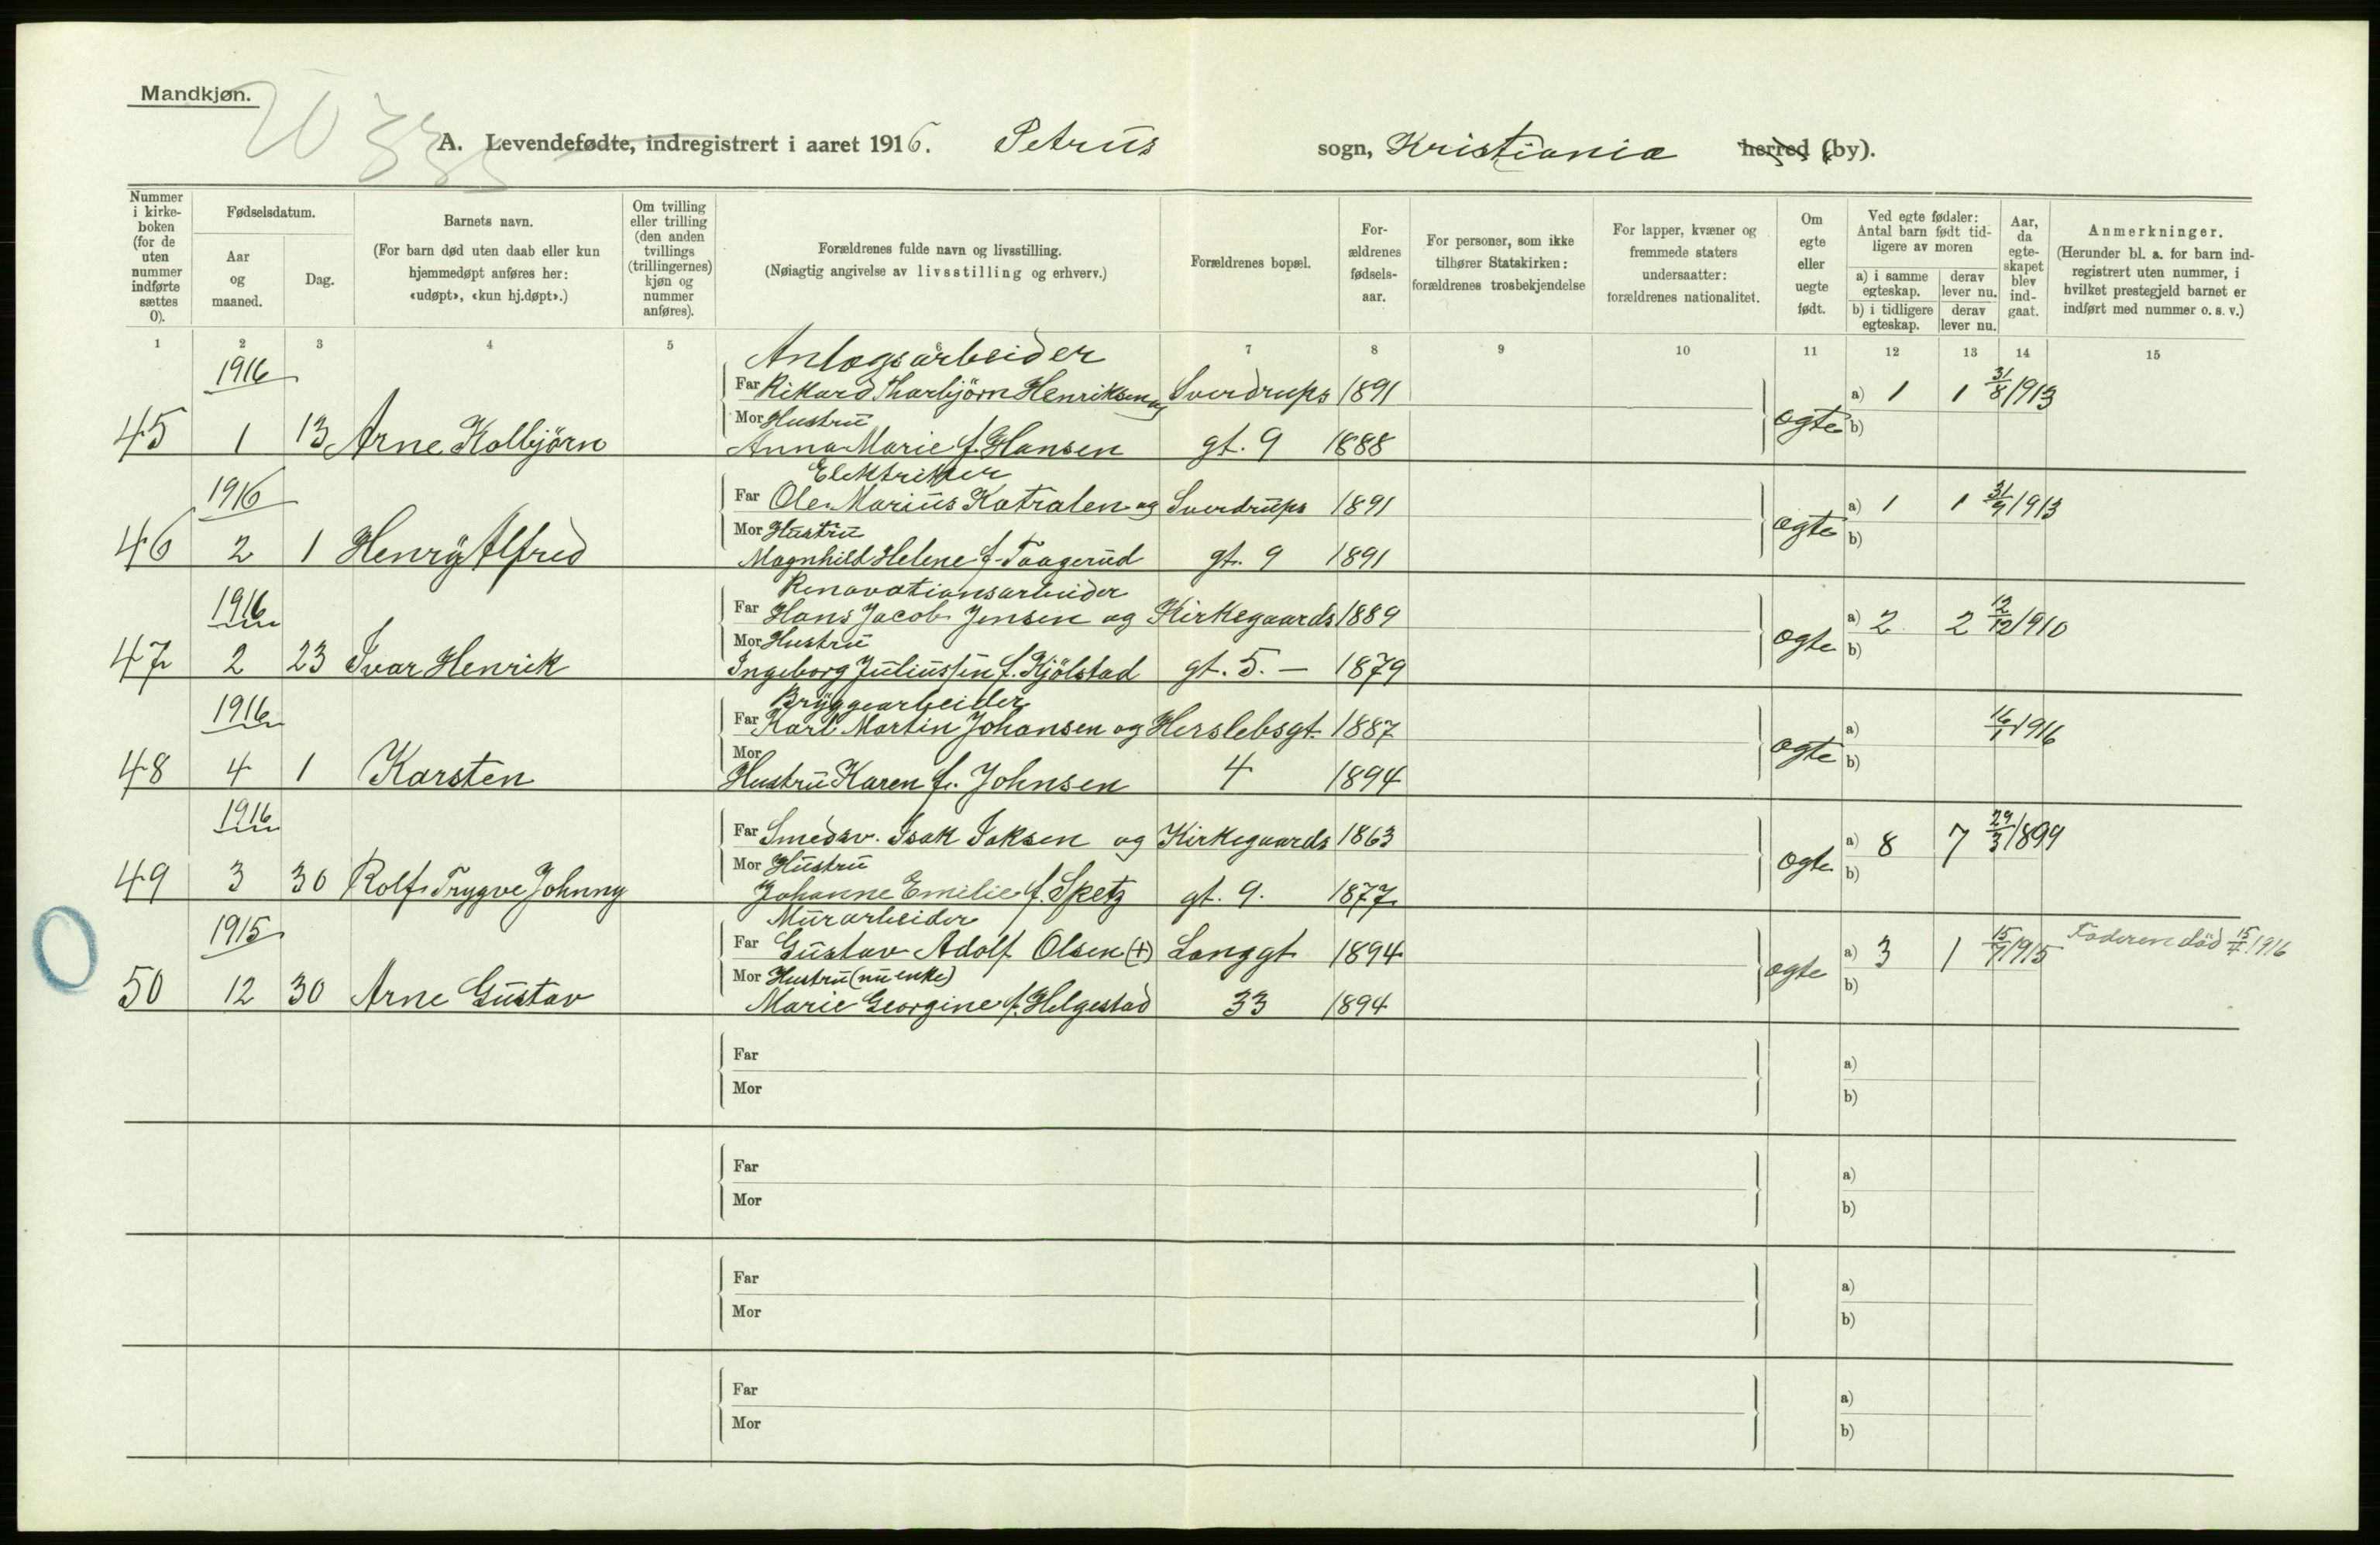 Mandkjøn.
A. Levendefødte, indregistrert i aaret 1916. Petrus sogn, Kristiania herred (by).
Nummer i kirkeboken (for de uten nummer indførte sættes 0).
Fødselsdatum.
Aar og maaned.
Dag.
Barnets navn.
(For barn død uten daab eller kun hjemmedøpt anføres her: «udøpt», «kun hj.døpt».)
Om tvilling eller trilling (den anden tvillings (trillingernes) kjøn og nummer anføres).
Forældrenes fulde navn og livsstilling.
(Nøiagtig angivelse av livsstilling og erhverv.)
Forældrenes bopæl.
Forældrenes fødselsaar.
For personer, som ikke tilhører Statskirken: forældrenes trosbekjendelse
For lapper, kvæner og fremmede staters undersaatter: forældrenes nationalitet.
Om egte eller uegte født.
Ved egte fødsler: Antal barn født tidligere av moren
a) i samme egteskap. derav lever nu.
b) i tidligere egteskap. derav lever nu.
Aar, da egteskapet blev indgaat.
Anmerkninger.
(Herunder bl. a. for barn indregistrert uten nummer, i hvilket prestegjeld barnet er indført med nummer o. s. v.)
1 2 3 4 5 6 7 8 9 10 11 12 13 14 15
1916 Anlogsarbeider
Far Rikard Thorbjörn Henriksen og Sverdrups 1891 a) 1 1 31/8 1913
Mor Hustru
45 1 13 Arne Kolbjörn Anna Marie f. Hansen gt. 9 1888 ogte b)
1916 Elektriker
Far Ole Marius Katralen og Sverdrups 1891 a) 1 1 31/9 1913
Mor Hustru
46 2 1 Henry Alfred Magnhild Helene f. Taagerud gt. 9 1891 ogte b)
1916 Renovationsarbeider
Far Hans Jacob Jensen og Kirkegaards 1889 a) 2 2 12/12 1910
Mor Hustru
47 2 23 Ivar Henrik Ingeborg Juliussen f. Kjölstad gt. 5. — 1879 ogte b)
1916 Bryggearbeider
Far Karl Martin Johansen og Herslebsgt. 1887 a) 16/1 1916
Mor
48 4 1 Karsten Hustru Karen f. Johnsen 4 1894 ogte b)
1916
Far Smedsv. Isak Isaksen og Kirkegaards 1863 a) 8 7 29/3 1899
Mor Hustru
49 3 30 Rolf Trygve Johnny Johanne Emilie f. Spetz gt. 9. 1877 ogte b)
1915 Murarbeider
Far Gustav Adolf Olsen (+) Langgt 1894 a) 3 1 15/9 1915 Faderen död 15/7 1916
Mor Hustru (nu enke)
50 12 30 Arne Gustav Marie Georgine f. Helgestad 33 1894 ogte b)
Far a)
Mor b)
Far a)
Mor b)
Far a)
Mor b)
Far a)
Mor b)